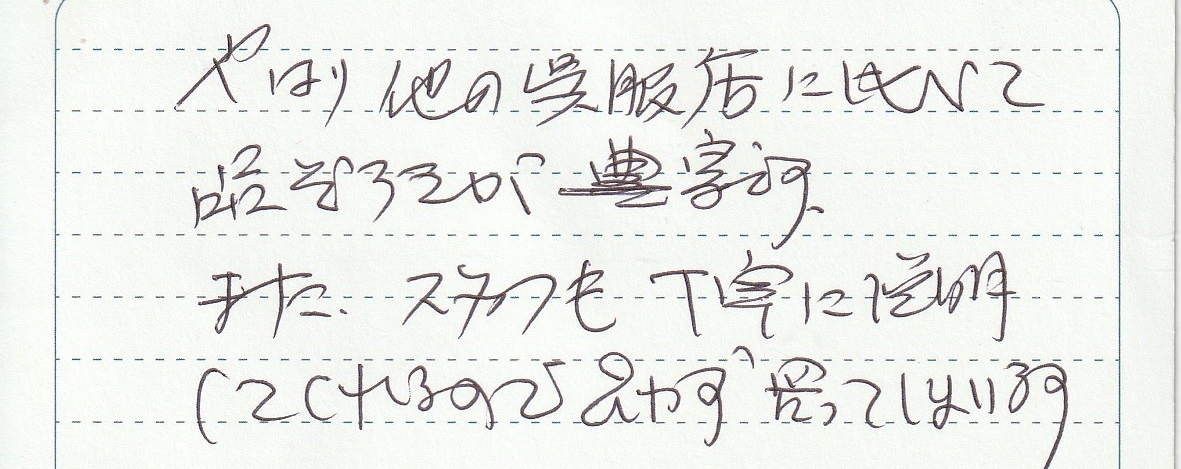 やはり他の呉服店に比べて
品ぞろえが豊富です。
また、スタッフも丁寧に説明
してくれるので思わず買ってしまいます